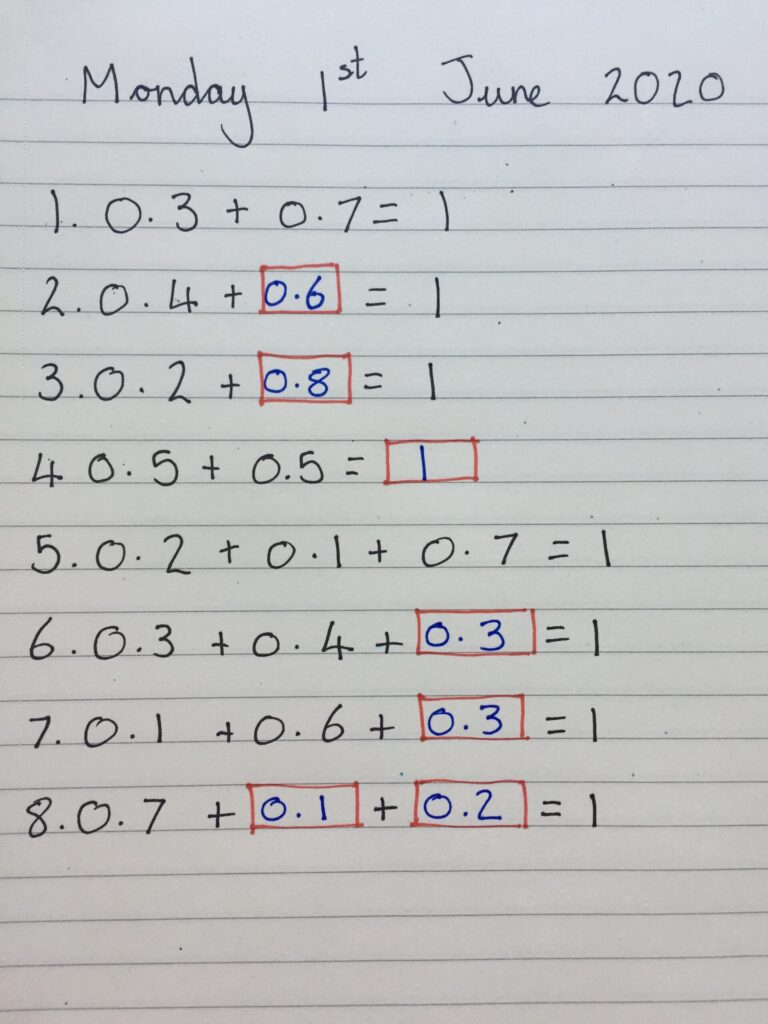 Monday 1st June 2020
1. 0.3 + 0.7 = 1
2. 0.4 + 0.6 = 1
3. 0.2 + 0.8 = 1
4 0.5 + 0.5 = 1
5. 0.2 + 0.1 + 0.7 = 1
6. 0.3 + 0.4 + 0.3 = 1
7. 0.1 + 0.6 + 0.3 = 1
8. 0.7 + 0.1 + 0.2 = 1